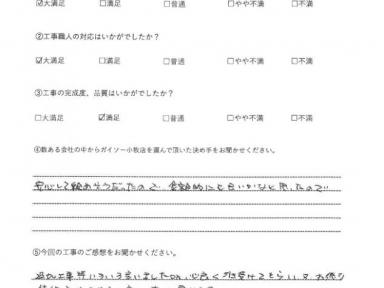 ☑大満足 □満足 □普通 □やや不満 □不満
②工事職人の対応はいかがでしたか？
☑大満足 □満足 □普通 □やや不満 □不満
③工事の完成度、品質はいかがでしたか？
□大満足 ☑満足 □普通 □やや不満 □不満
④数ある会社の中からガイソー小牧店を選んで頂いた決め手をお聞かせください。
安心して頼めそうだったので、金額的にも良いかなと思ったので
⑤今回の工事のご感想をお聞かせください。
追加工事等いろいろ言いましたが、心良く引受けてもらい